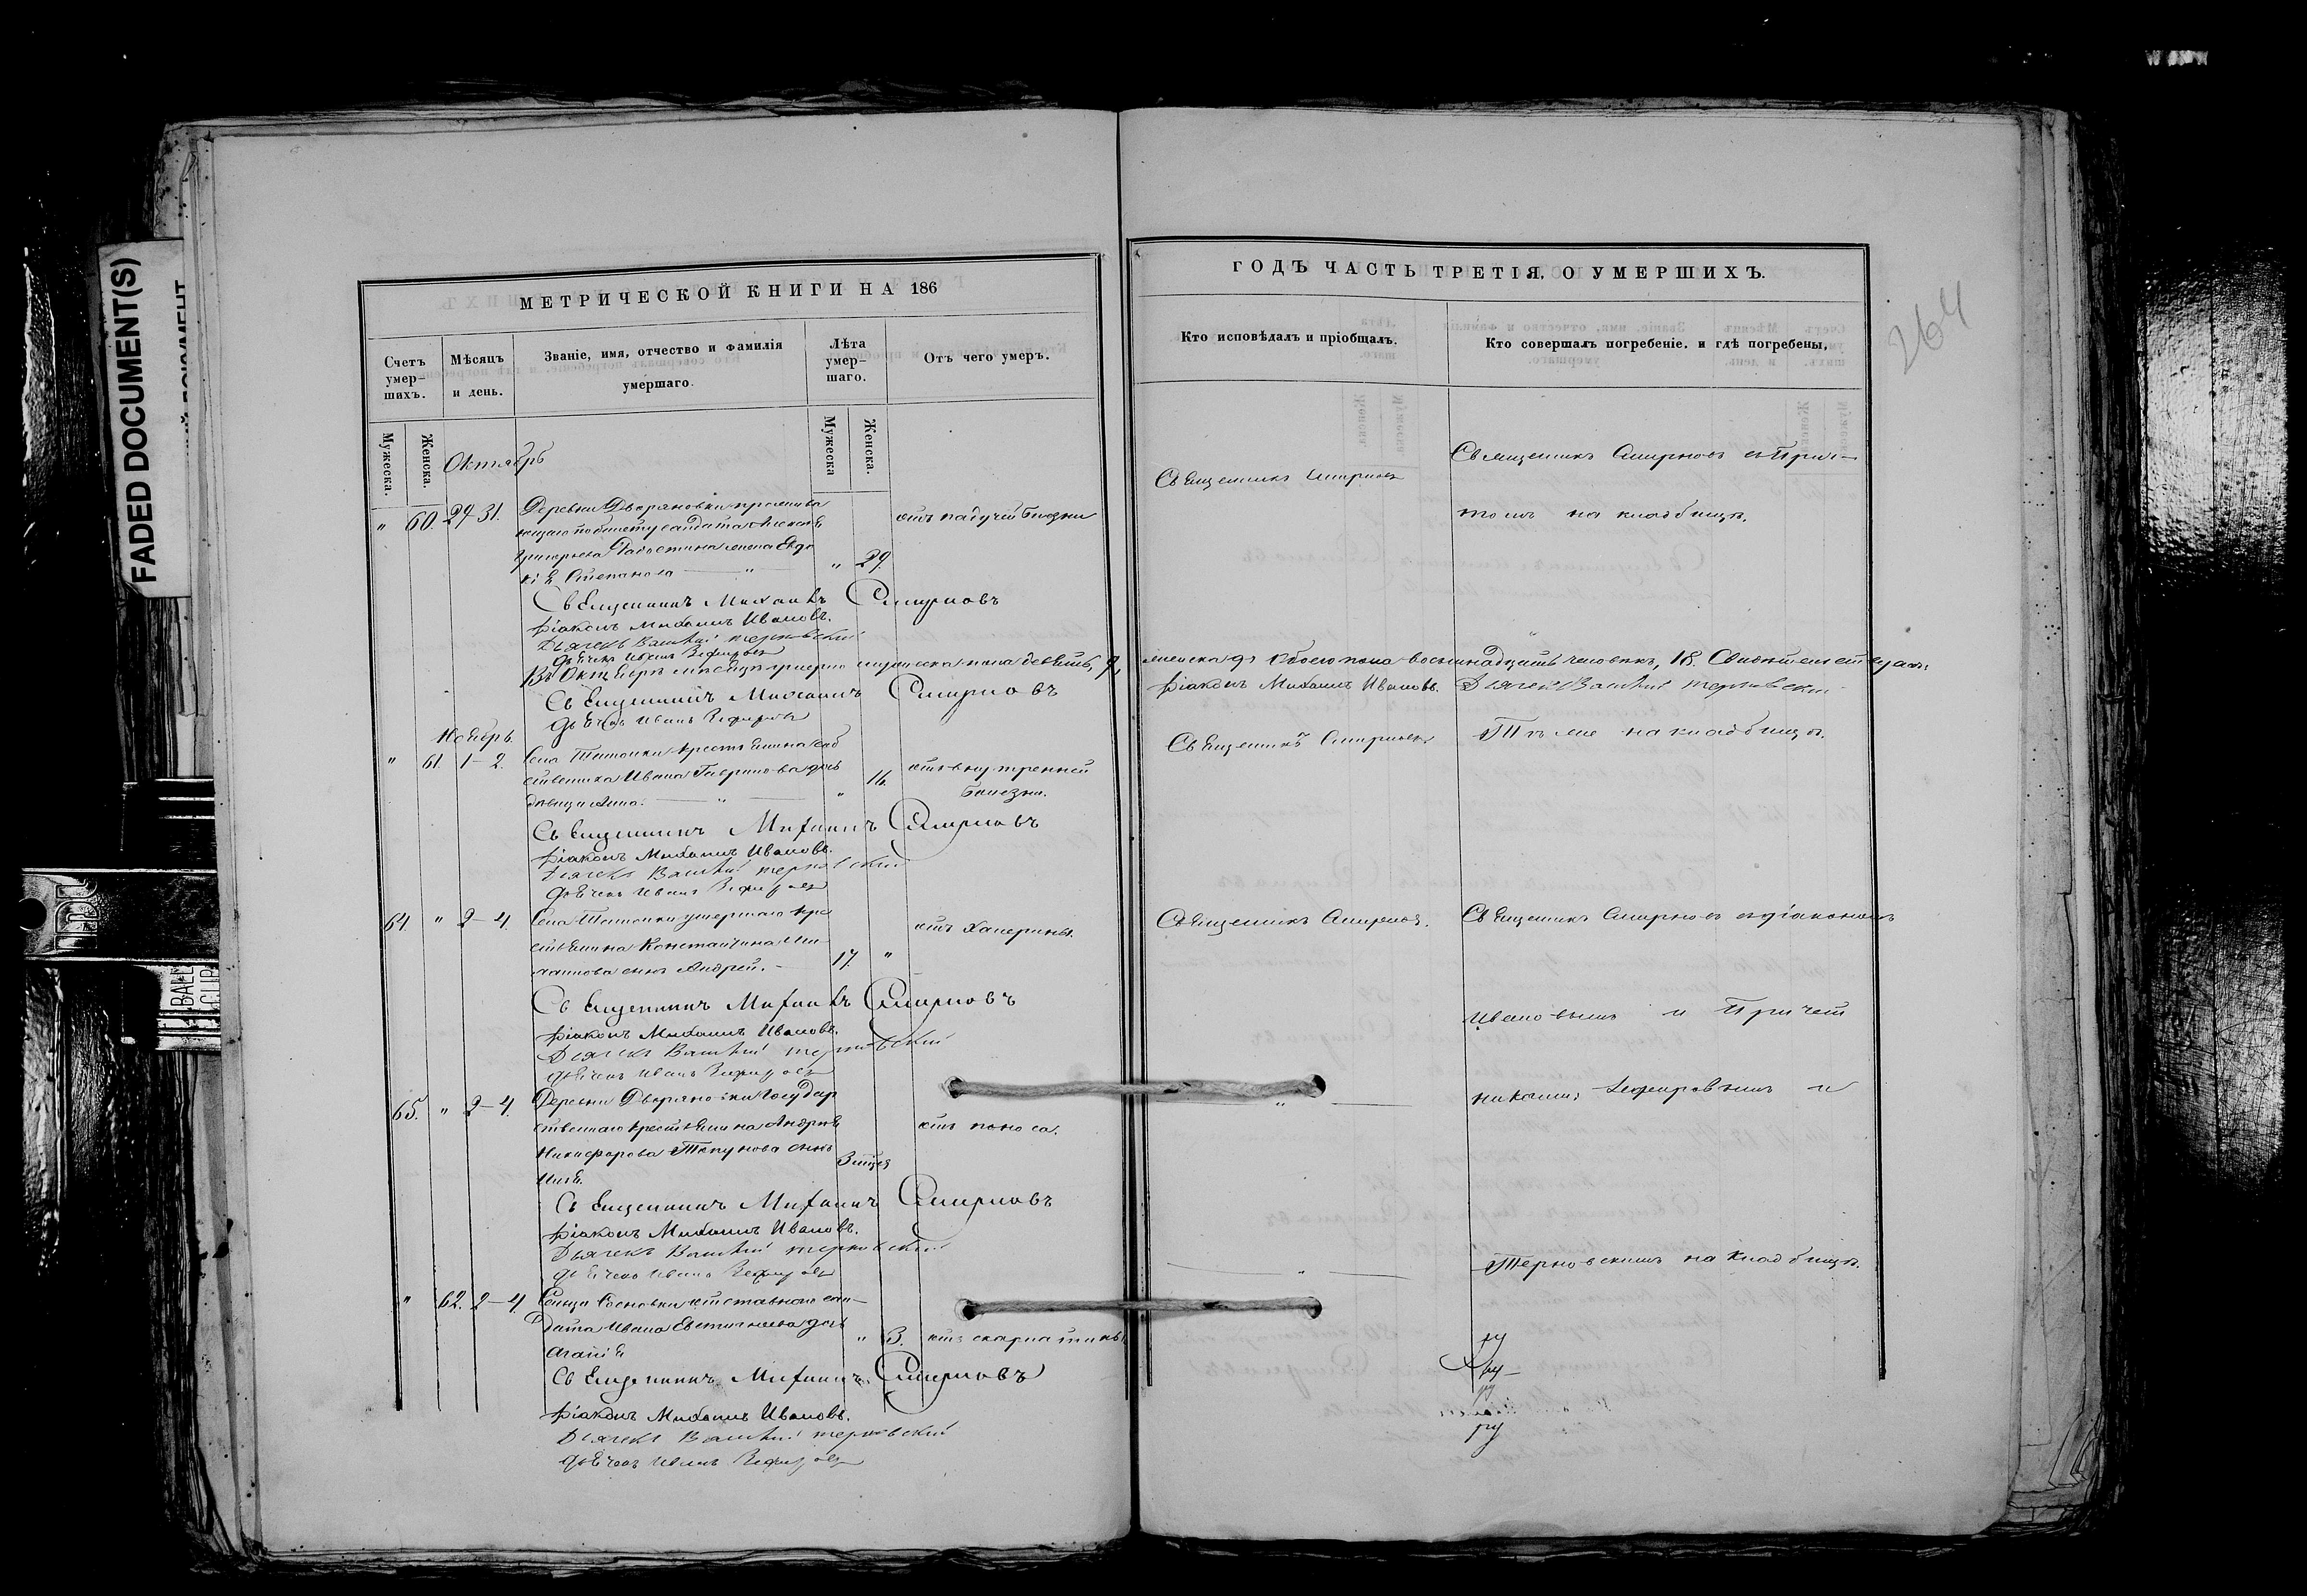 FADED DOCUMENT(S)
МЕТРИЧЕСКОЙ КНИГИ НА 186
Счетъ умер-шихъ.
Мѣсяцъ и день.
Званіе, имя, отчество и фамилія умершаго.
Лѣта умер-шаго.
Отъ чего умеръ.
Мужеска.
Женска.
Мужеска
Женска.
Октябрь
" 60. 29 31. Деревни Дворяновки прожива
ющаго по билету солдата Алексѣя отъ падучей болѣзни
Григорьева жена Евдо
кія Степанова " " 29.
Священникъ Михаилъ Смирновъ
Діаконъ Михаилъ Ивановъ.
Дьячекъ Василій Терновскій
Дьячекъ Иванъ Зефировъ
Въ Октябрѣ мѣсяцѣ умерло мужеска пола девять, 9,
Священникъ Михаилъ Смирновъ
Дьячекъ Иванъ Зефировъ
Ноябрь.
" 61. 1–2. Села крестьянина соб
ственника Ивана Гаврилова дочь отъ внутренней
дѣвица Анна. " " 16. болезни.
Священникъ Михаилъ Смирновъ
Діаконъ Михаилъ Ивановъ.
Дьячекъ Василій Терновскій
Дьячекъ Иванъ Зефировъ
64. " 2–4. Села умершаго кре
стьянина Константина Ми- отъ холерины.
хаилова сынъ Андрей. – 17. "
Священникъ Михаилъ Смирновъ
Діаконъ Михаилъ Ивановъ.
Дьячекъ Василій Терновскій
Дьячекъ Иванъ Зефировъ
65. " 2–4. Деревни Дворяновки Государ
ственнаго крестьянина Андрея отъ поноса.
Никифорова сынъ
Илія.
Священникъ Михаилъ Смирновъ
Діаконъ Михаилъ Ивановъ.
Дьячекъ Василій Терновскій
Дьячекъ Иванъ Зефировъ
" 62. 2–4. Сельца Сосновки отставного сол-
дата Ивана Евстигнеева дочь " 3. отъ скарлатины
Агапія
Священникъ Михаилъ Смирновъ
Діаконъ Михаилъ Ивановъ.
Дьячекъ Василій Терновскій
Дьячекъ Иванъ Зефировъ
ГОДЪ ЧАСТЬ ТРЕТІЯ, О УМЕРШИХЪ.
264
Кто исповѣдалъ и пріобщалъ.
Кто совершалъ погребеніе, и гдѣ погребены.
Священникъ Смирновъ
Священникъ Смирновъ съ Прич-
томъ на кладбищѣ.
женска 9, обоего пола восемнадцать человѣкъ, 18. Свидѣтельствуемъ:
Діаконъ Михаилъ Ивановъ. Дьячекъ Василій Терновскій
Священникъ Смирновъ
Тѣ же на кладбищѣ.
Священникъ Смирновъ.
Священникъ Смирновъ съ діакономъ
Ивановымъ и Причет
никами: Зефировымъ и
Терновскимъ на кладбищѣ.